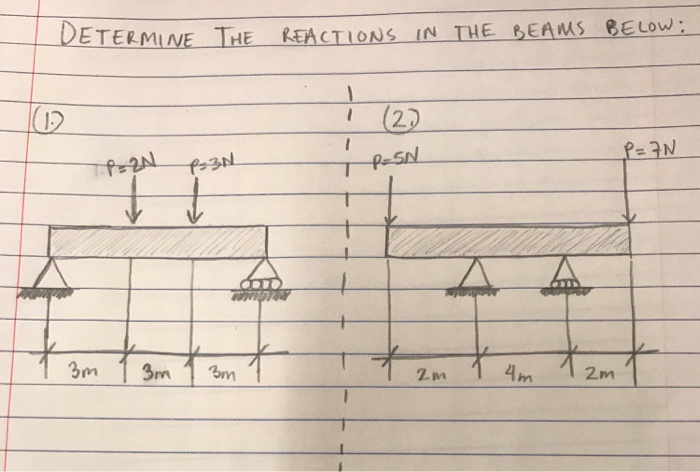 DETERMINE THE REACTIONS IN THE BEAMS BELOW:
(1.)
P=2N P=3N
3m 3m 3m
(2.)
P=5N P=7N
2m 4m 2m